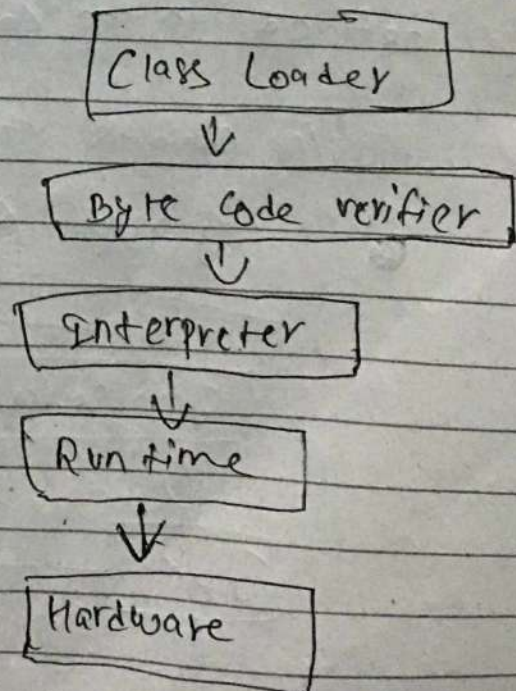 Class Loader
Byte Code verifier
Interpreter
Run time
Hardware